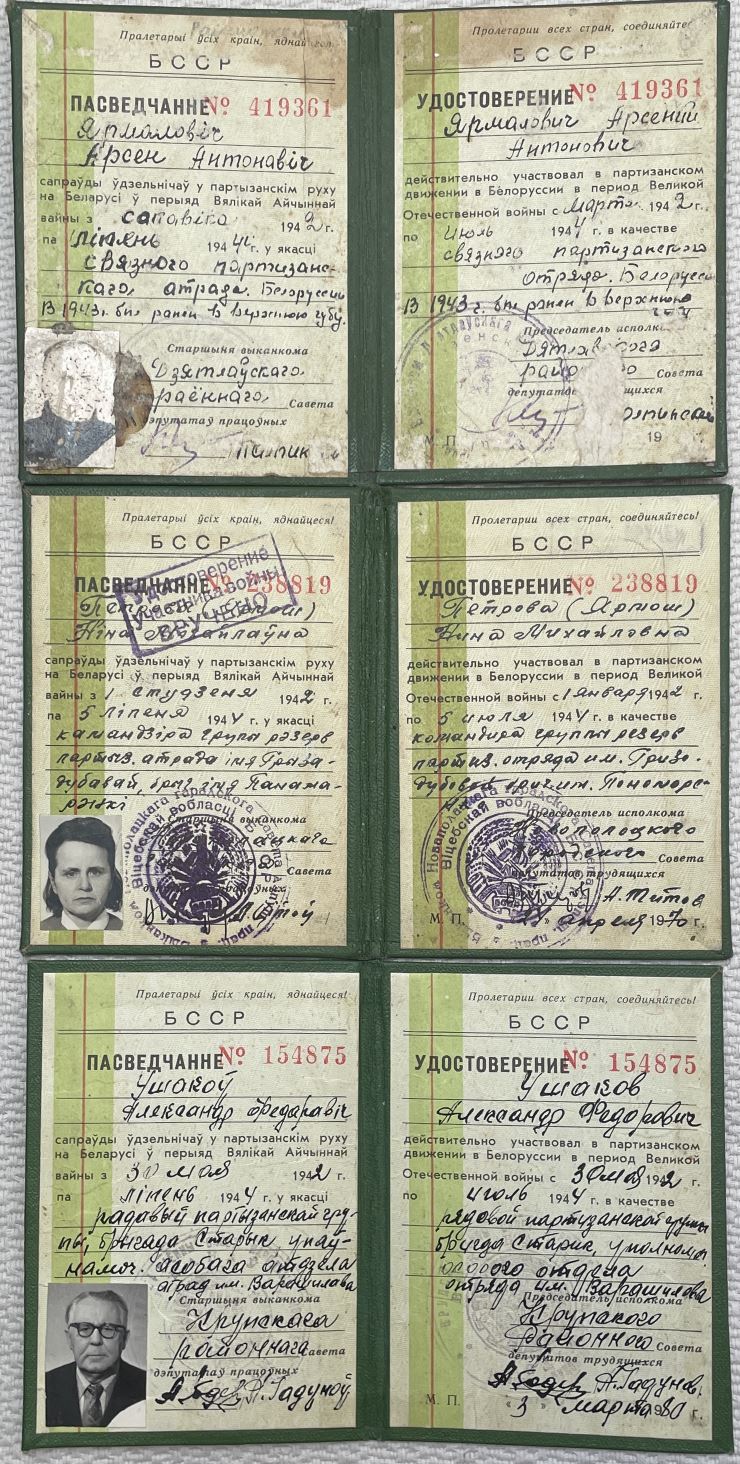 Пралетарыі ўсіх краін, яднайцеся!
БССР
ПАСВЕДЧАННЕ № 419361
Ярмаловіч
Арсен Антонавіч
сапраўды ўдзельнічаў у партызанскім руху
на Беларусі ў перыяд Вялікай Айчыннай
вайны з сакавіка 1942 г.
па ліпень 1944 г. у якасці
связного партизанс-
каго атрада. Белоруссии
В 1943 г. был ранен в верхнюю губу.
Старшыня выканкома
Дзятлаўскага
раённага Савета
дэпутатаў працоўных
Пролетарии всех стран, соединяйтесь
БССР
УДОСТОВЕРЕНИЕ № 419361
Ярмалович Арсений
Антонович
действительно участвовал в партизанском
движении в Белоруссии в период Великой
Отечественной войны с марта 1942 г.
по июль 1944 г. в качестве
связного партизанского
отряда. Белоруссии
В 1943 г. был ранен в верхнюю
Председатель исполк
Дятловского
депутатов трудящихся
М. П. 19
Пралетарыі ўсіх краін, яднайцеся!
БССР
ПАСВЕДЧАННЕ № 238819
Удостоверение
участника войны
ВРУЧЕНО
Ніна Міхайлаўна
сапраўды ўдзельнічаў у партызанскім руху
на Беларусі ў перыяд Вялікай Айчыннай
вайны з 1 студзеня 1942 г.
па 5 ліпеня 1944 г. у якасці
камандзіра групы рэзерв
партыз. атрада імя Грыза-
дубавай, брыг. імя Панама-
рэнкі
Старшыня выканкома
Савета
дэпутатаў працоўных
Пролетарии всех стран, соединяйтесь!
БССР
УДОСТОВЕРЕНИЕ № 238819
Петрова (Ярмош)
Нина Михайловна
действительно участвовал в партизанском
движении в Белоруссии в период Великой
Отечественной войны с 1 января 1942 г.
по 5 июля 1944 г. в качестве
командира группы резерв
партиз. отряда им. Гризо-
дубовой, бриг. им. Пономарен-
Председатель исполкома
Новополоцкого
Совета
депутатов трудящихся
А. Титов
М. П. апреля 1970 г.
Пралетарыі ўсіх краін, яднайцеся!
БССР
ПАСВЕДЧАННЕ № 154875
Ушакоў
Александр Федаравіч
сапраўды ўдзельнічаў у партызанскім руху
на Беларусі ў перыяд Вялікай Айчыннай
вайны з 30 мая 1942 г.
па ліпень 1944 г. у якасці
радавый партызанскай гру-
пы, брыгада Старык, упаў-
намоч. асобага атдзела
атрад им. Варашилава
Старшыня выканкома
Крупскага
районнага Савета
дэпутатаў працоўных
Гадуноў
Пролетарии всех стран, соединяйтесь!
БССР
УДОСТОВЕРЕНИЕ № 154875
Ушаков
Александр Федорович
действительно участвовал в партизанском
движении в Белоруссии в период Великой
Отечественной войны с 30 мая 1942 г.
по июль 1944 г. в качестве
рядовой партизанской группы
бригада Старик, уполном.
особого отдела
отряда им. Варашилова
Председатель исполкома
Крупского
районного Совета
депутатов трудящихся
А. Гадунов.
М. П. «3» марта 1980 г.